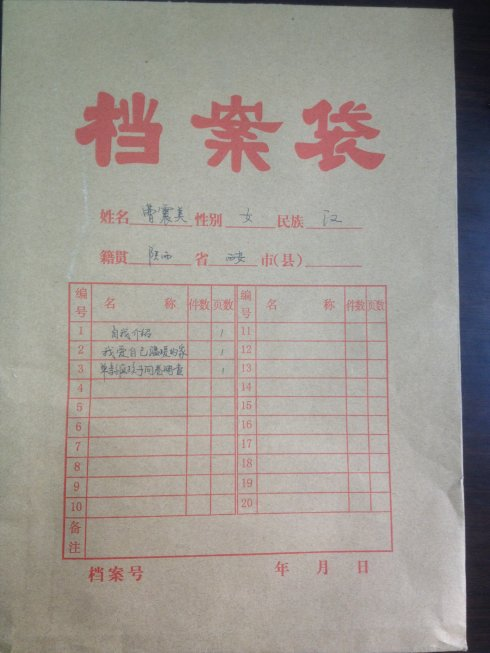 档案袋
姓名 曹震美 性别 女 民族 汉
籍贯 陕西 省 西安 市(县)
编号 名称 件数 页数 编号 名称 件数 页数
1 自我介绍 1 11
2 我爱自己温暖的家 1 12
3 单亲家庭孩子问卷调查 1 13
4 14
5 15
6 16
7 17
8 18
9 19
10 20
备注
档案号 年 月 日